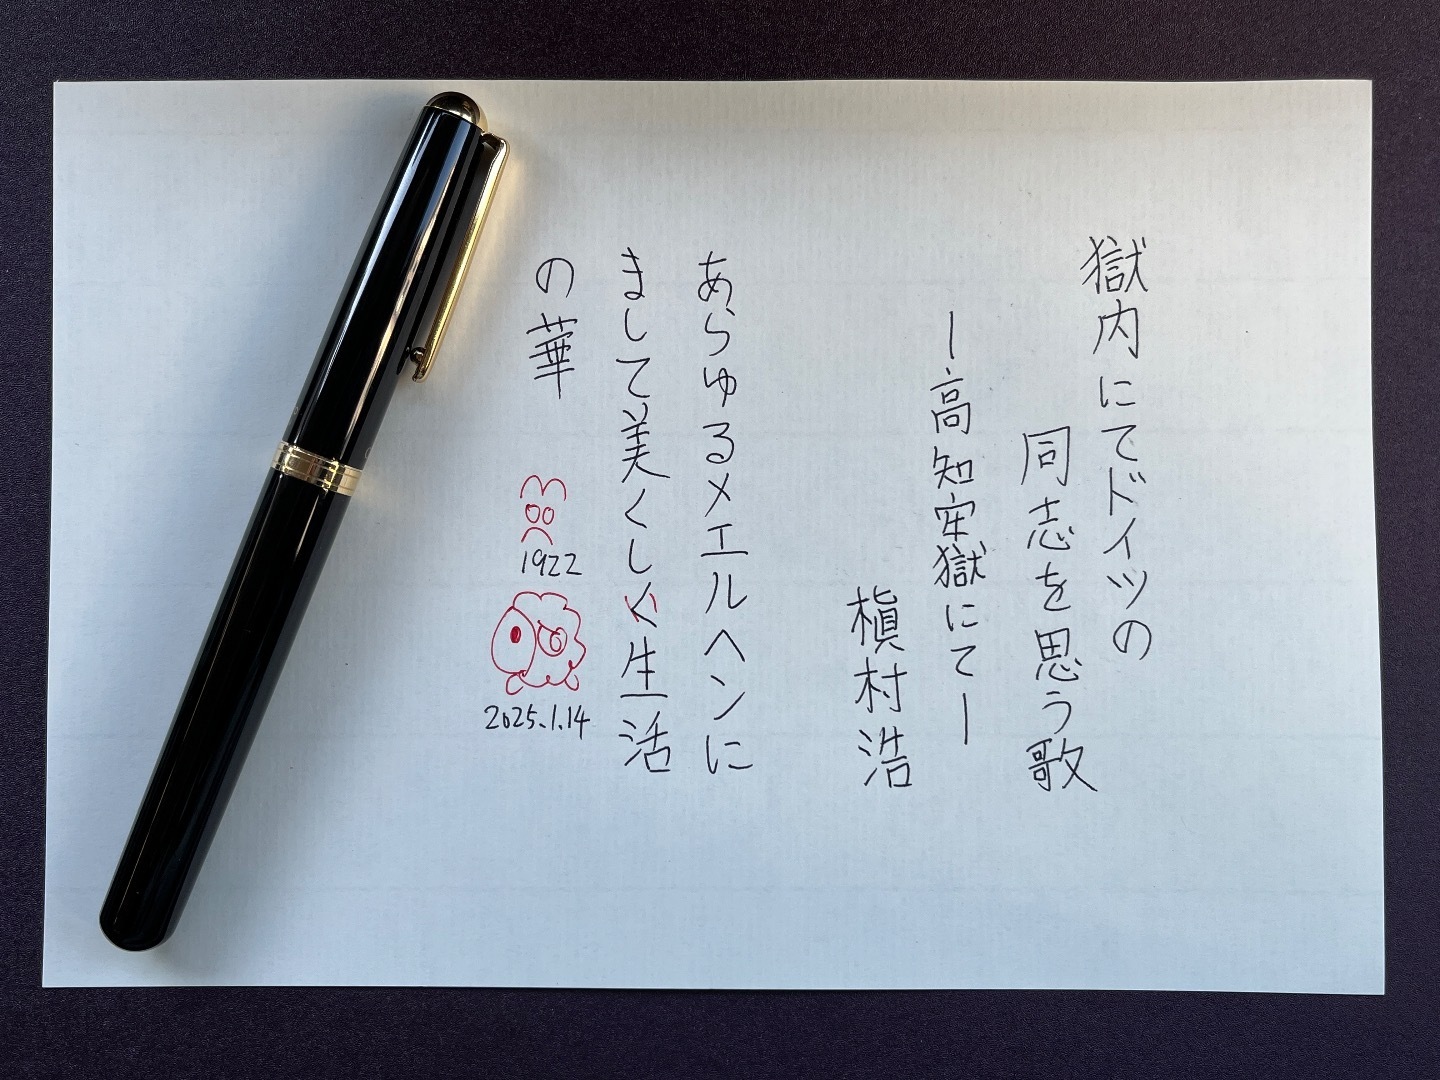 獄内にてドイツの
同志を思う歌
ー高知牢獄にてー
槇村浩
あらゆるメエルヘンに
まして美くしく生活
の華
1922
2025.1.14